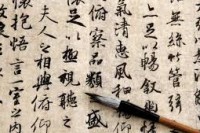 無絲竹管弦
足以暢敘
氣清惠風和暢
俯察品類之盛
足以極視聽之
夫人之相與俯仰
懷抱悟言一室之內